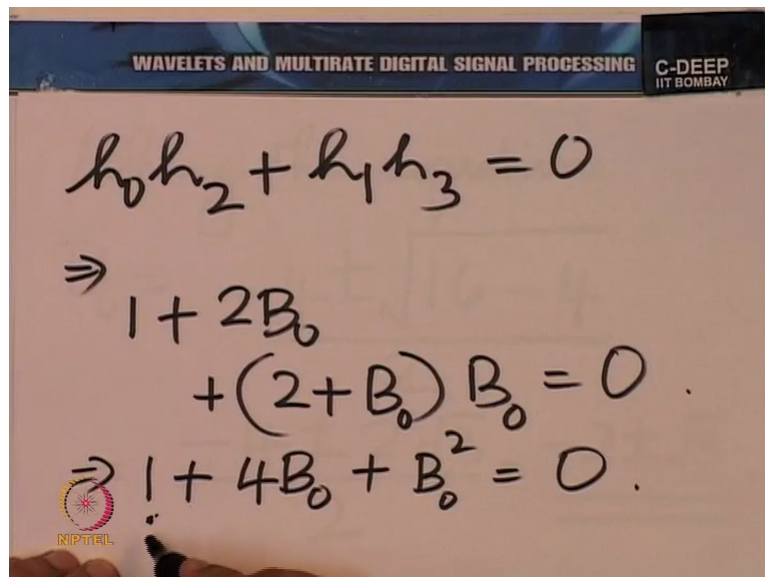 WAVELETS AND MULTIRATE DIGITAL SIGNAL PROCESSING
C-DEEP
IIT BOMBAY
h₀h₂ + h₁h₃ = 0
⇒
1 + 2B₀
+ (2 + B₀) B₀ = 0 .
⇒ 1 + 4B₀ + B₀² = 0 .
NPTEL